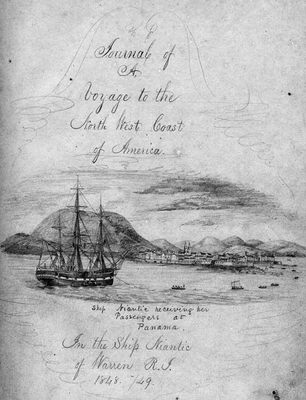 Journal of
A
Voyage to the
North West Coast
of America.
Ship Niantic receiving her
Passengers at
Panama
In the Ship Niantic
of Warren R.I.
1848. /49.